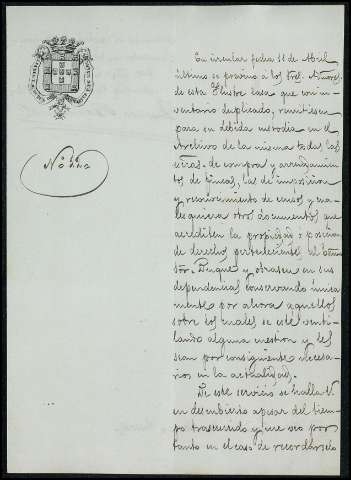 En circular fecha 11 de Abril
último se previno a los Sres. Admres.
de esta Ilustre casa que con in-
ventario duplicado, remitiesen
para su debida custodia en el
Archivo de la misma todas las
de compra y arrendamien-
tos de fincas, las de imposicion
y reconocimiento de censos y cua-
lesquiera otros documentos que
acrediten la propiedad o posesion
de derechos pertenecientes al
Duque y obrasen en sus
dependencias conservando unica-
mente por ahora aquellos
sobre los cuales se esté venti-
lando alguna cuestion y les
sean por consiguiente necesa-
rios en la actualidad.
De este servicio se halla V.
en descubierto apesar del tiem-
po trascurrido y me veo por
tanto en el caso de recordárselo